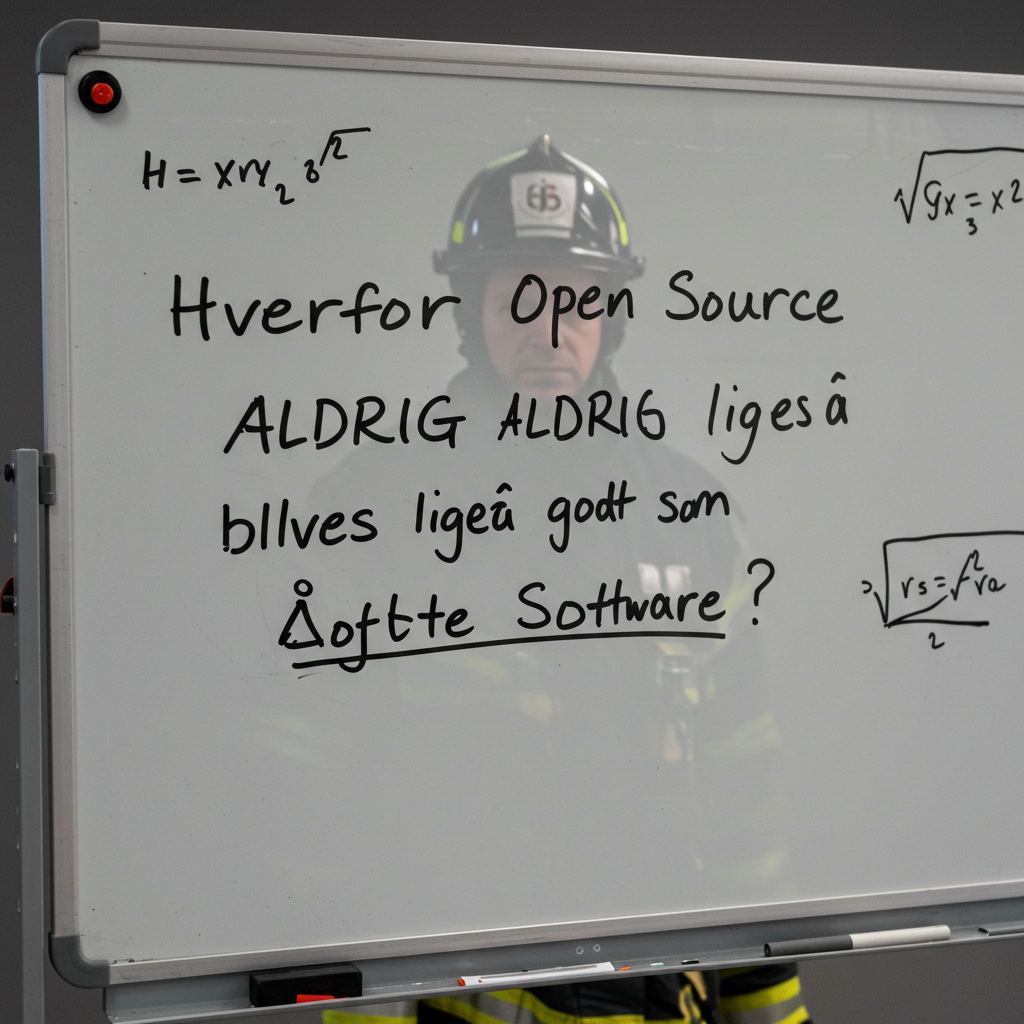 H = xrY₂ 8√2
√9x = x2
3
Hverfor Open Source
ALDRIG ALDRIG ligesâ
bllves ligeâ godt som
Åoftte Software?
rs = √2 ra
2